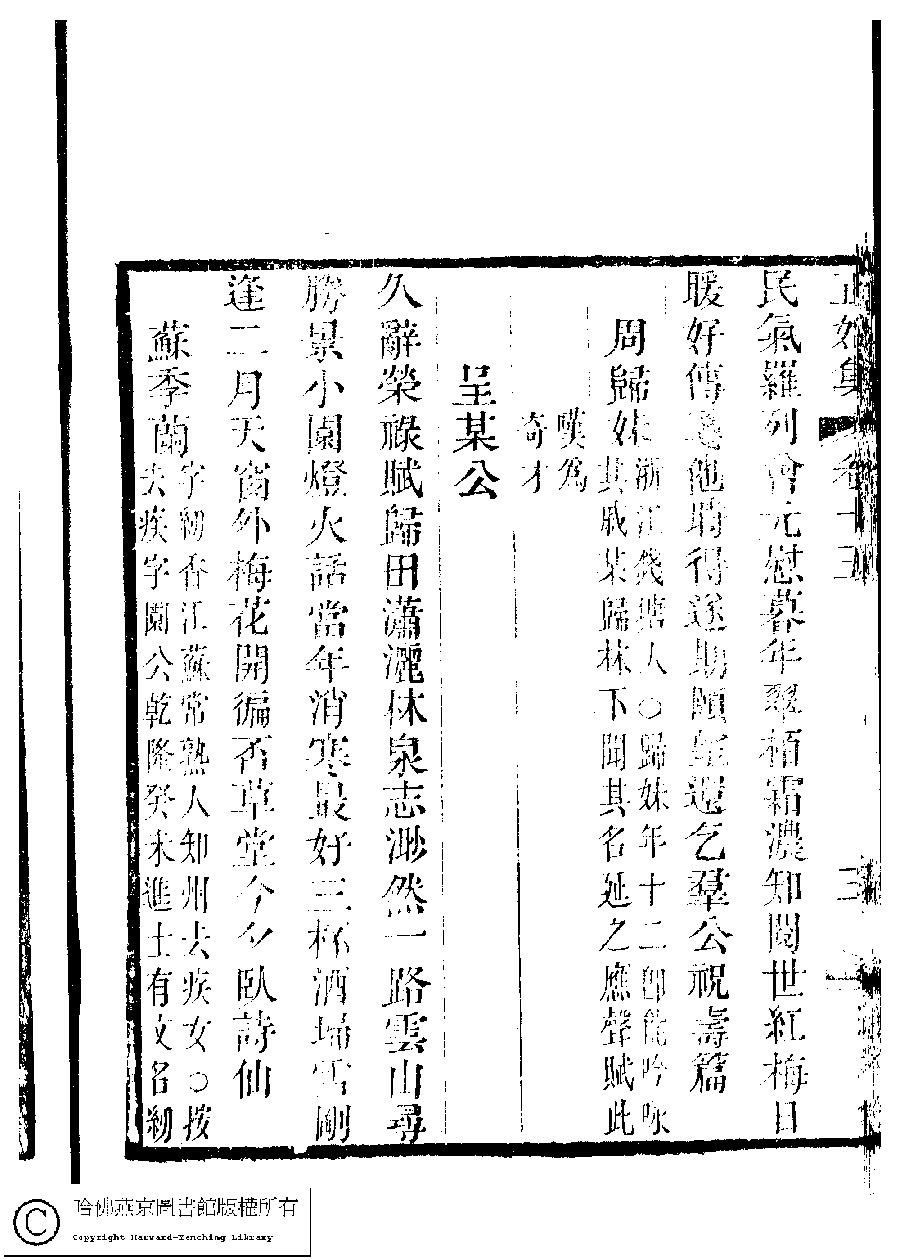 正始集 卷十三 三
民氣羅列會元慰暮年翠栢霜濃知閱世紅梅日
暖好傳 他時得遂期頤 還乞羣公祝壽篇
周歸妹浙江錢塘人○歸妹年十二卽能吟咏
其戚某歸林下聞其名延之應聲賦此
嘆爲
奇才
呈某公
久辭榮祿賦歸田瀟灑林泉志渺然一路雲山尋
勝景小園燈火話當年消寒最好三杯酒埽雪剛
逢二月天窗外梅花開徧否草堂今夕臥詩仙
蘇季蘭字紉香江蘇常熟人知州去疾女○按
去疾字園公乾隆癸未進士有文名紉
哈佛燕京圖書館版權所有
Copyright Harvard-Yenching Library